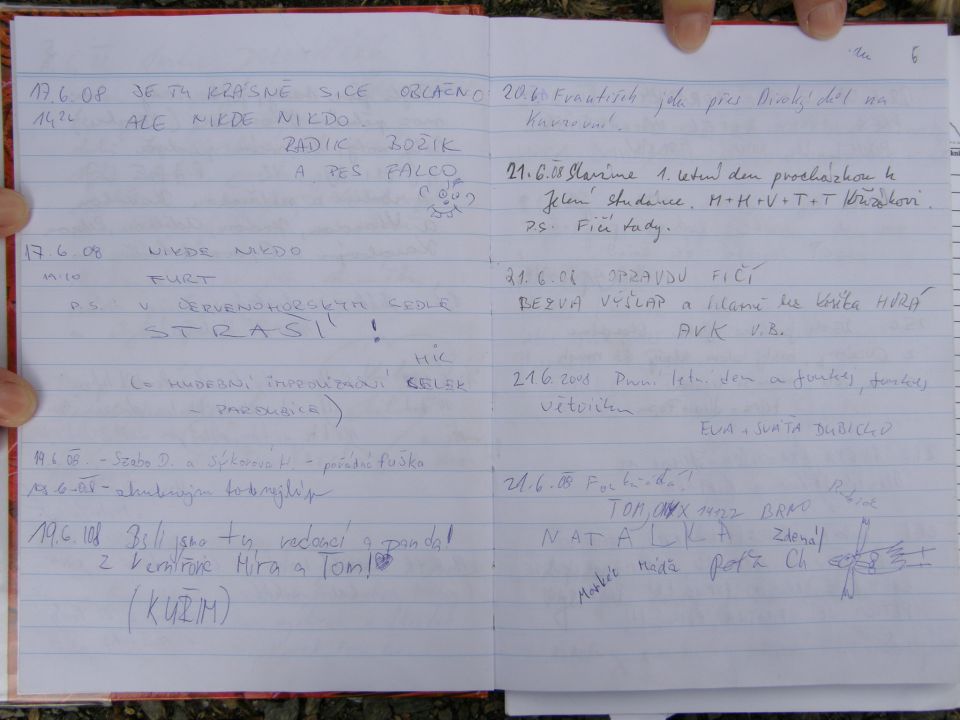 17.6.08 JE TU KRÁSNĚ SICE OBLAČNO
14²⁴ ALE NIKDE NIKDO.
RADIK BOŽIK
A PES FALCO
17.6.08 NIKDE NIKDO
FURT
P.S. V ČERVENOHORSKÝM SEDLE
STRAŠÍ!
HIC
(= HUDEBNÍ IMPROVIZAČNÍ CELEK
- PARDUBICE)
19.6.08. - Szabo D. a Sýkorová H. - pořádná fuška
19.6.08
19.6.108 Byli jsme tu vedoucí a panda!
z Vernířovic Míra a Tom!
(KUŘIM)
6
20.6. František jde přes Divoký důl na
21.6.08 Slavíme 1. letní den procházkou k
Jelení studánce. M+H+V+T+T Křižákovi.
P.S. Fičí tady.
21.6.08 OPRAVDU FIČÍ
BEZVA VÝŠLAP a hlavně bez HURÁ
AVK V.B.
21.6.2008 První letní den a foukej, foukej
větříčku
EVA + SVÁŤA DUBICKO
21.6.08
TOM, BRNO
NATALKA Zdena
Peťa Ch